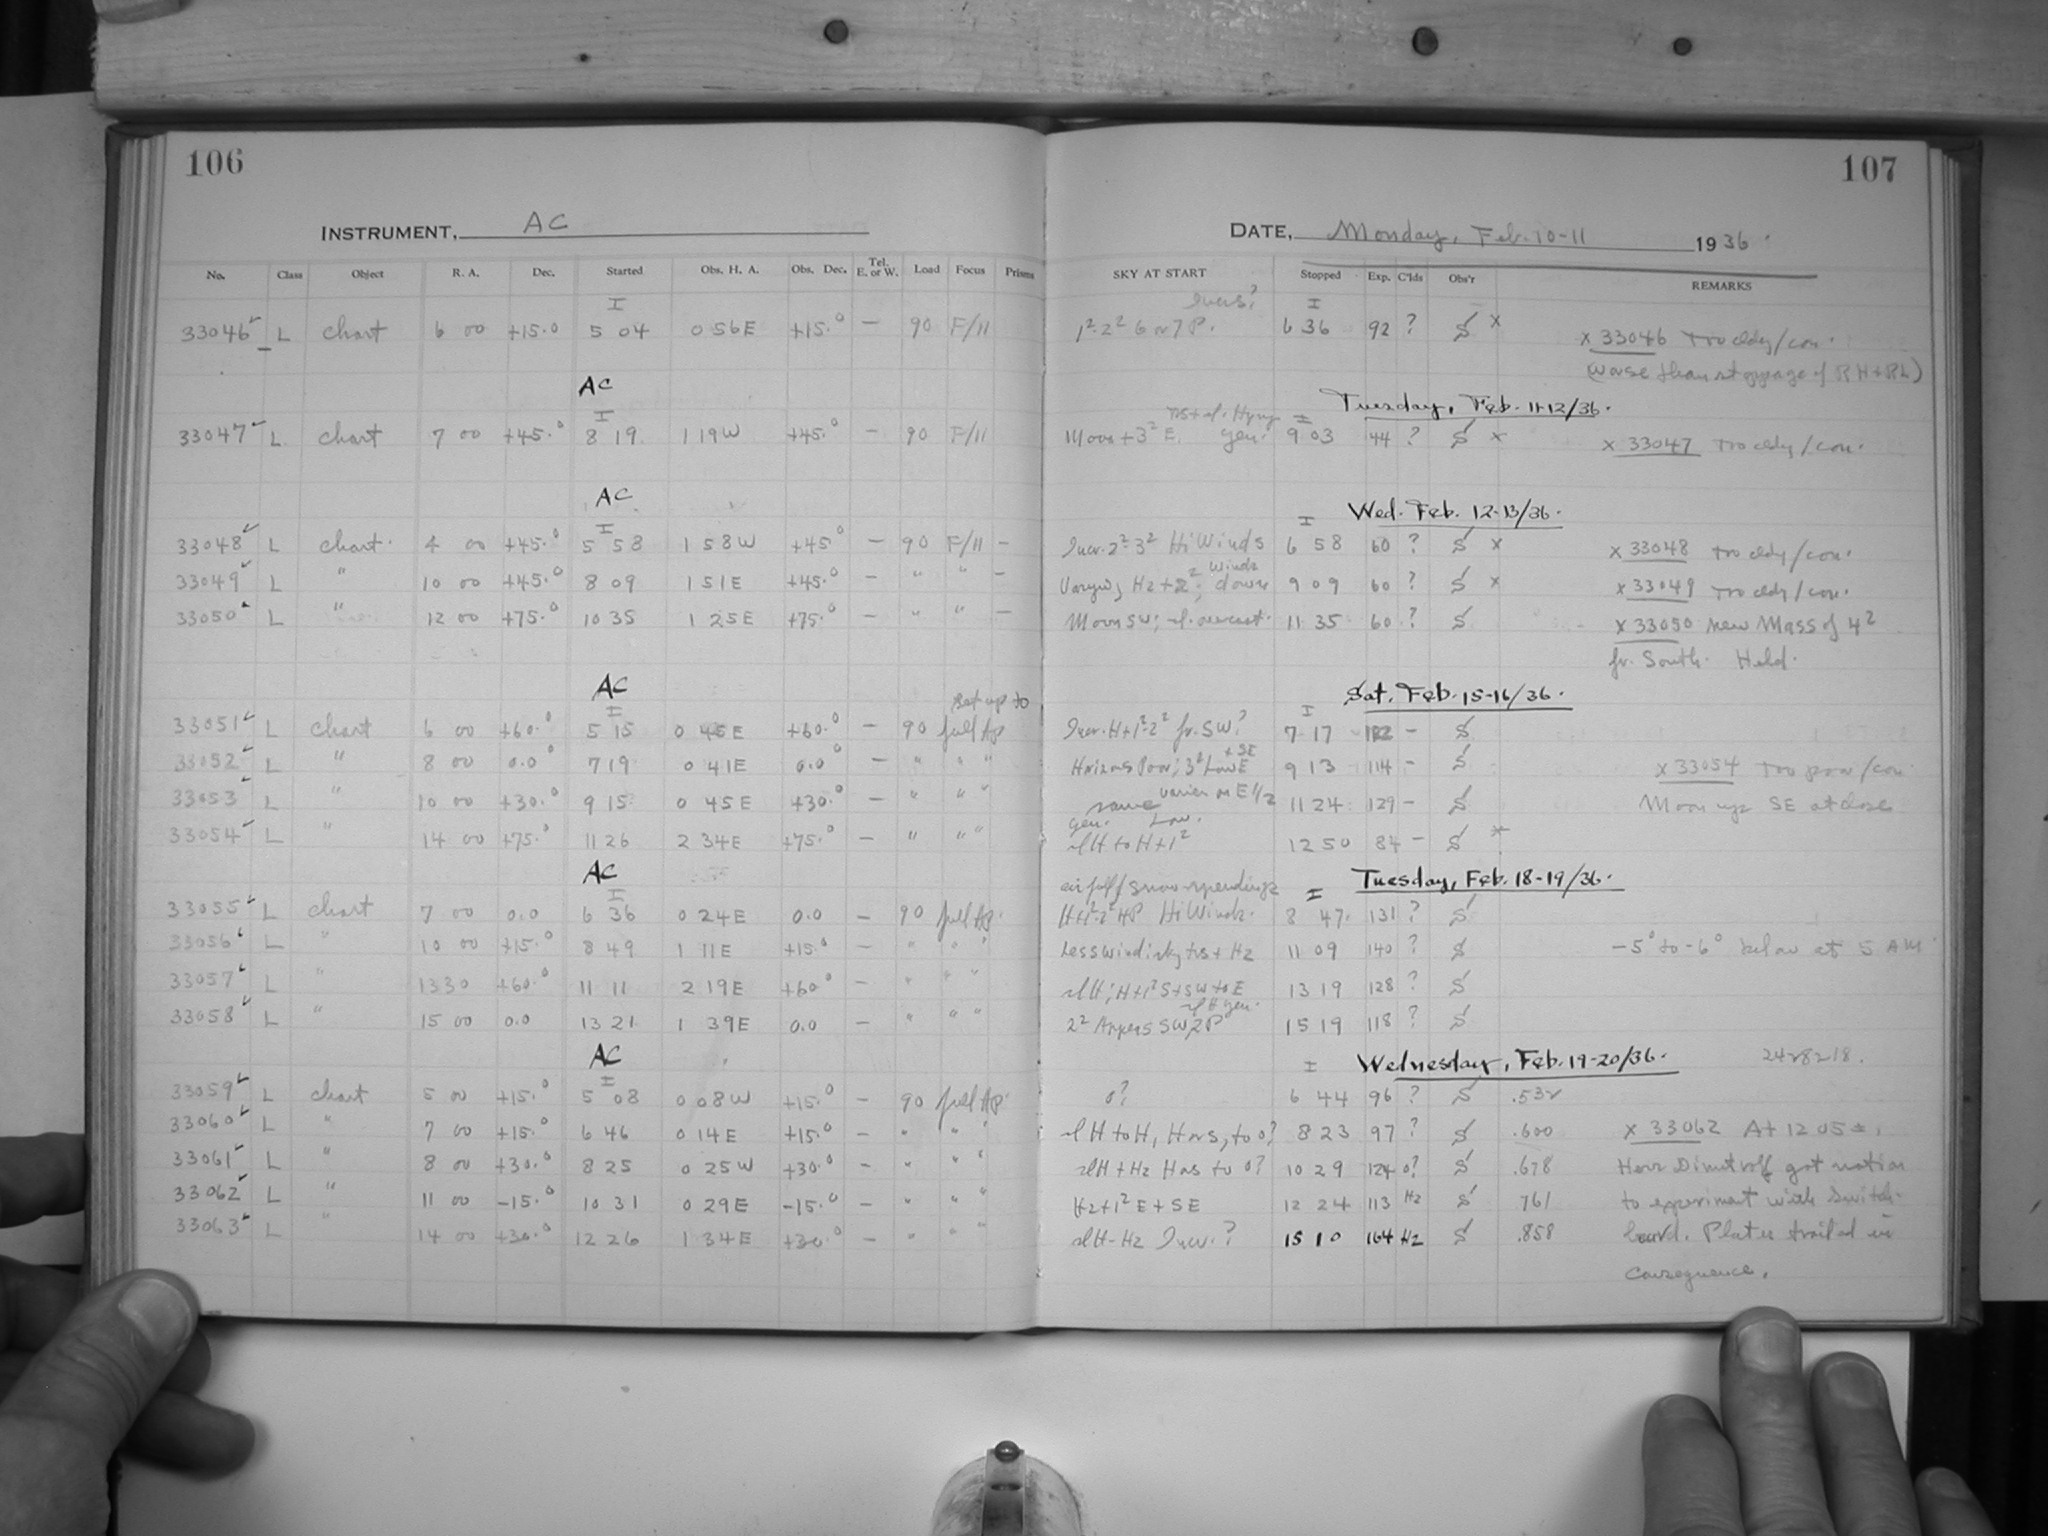 106
107
INSTRUMENT, AC
DATE, Monday, Feb. 10-11 1936.
No. Class Object R. A. Dec. Started Obs. H. A. Obs. Dec. Tel. E. or W. Load Focus Prisms SKY AT START Stopped Exp. C'lds Obs'r REMARKS
I I
33046 ✓ L chart 6 00 +15.0 5 04 0 56E +15.° — 90 F/11 1²-2² 6 or 7 P. 6 36 92 ? S x x 33046 Too cldy/con.
(worse than stoppage of RH + RL)
AC Tuesday, Feb. 11-12/36.
I I
33047 ✓ L chart 7 00 +45.° 8 19 1 19W +45.° — 90 F/11 Moon + 3² E. gen. 9 03 44 ? S x x 33047 Too cldy/con.
AC Wed. Feb. 12-13/36.
I I
33048 ✓ L chart. 4 00 +45.° 5 58 1 58W +45° — 90 F/11 — Incr. 2²-3² Hi Winds 6 58 60 ? S x x 33048 Too cldy/con.
33049 ✓ L " 10 00 +45.° 8 09 1 51E +45.° — " " — Hz + 2²; Winds down 9 09 60 ? S x x 33049 Too cldy/con.
33050 ✓ L " 12 00 +75.° 10 35 1 25E +75.° — " " — Moon SW; overcast. 11 35 60 ? S x 33050 new Mass of 4²
fr. South. Held.
AC Sat. Feb. 15-16/36.
set up to
I I
33051 ✓ L chart 6 00 +60.° 5 15 0 45E +60.° — 90 full Ap Incr. H+1²-2² fr. SW? 7 17 122 — S
33052 ✓ L " 8 00 0.0 7 19 0 41E 0.0 — " " " Horizons Poor; 3² Low E + SE 9 13 114 — S x 33054 Too poor/con
33053 ✓ L " 10 00 +30.° 9 15 0 45E +30.° — " " " same varies on E 1/2 11 24 129 — S Moon up SE at close
gen. Low.
33054 ✓ L " 14 00 +75.° 11 26 2 34E +75.° — " " " H to H+1² 12 50 84 — S x
AC Tuesday, Feb. 18-19/36.
air full/snow
I I
33055 ✓ L chart 7 00 0.0 6 36 0 24E 0.0 — 90 full Ap. H+1²-2² 4P Hi Winds. 8 47 131 ? S
33056 ✓ L " 10 00 +15.° 8 49 1 11E +15.° — " " " Less wind + Hz 11 09 140 ? S -5° to -6° below at 5 AM
33057 ✓ L " 13 30 +60.° 11 11 2 19E +60° — " " " H+1² S+SW to E 13 19 128 ? S
33058 ✓ L " 15 00 0.0 13 21 1 39E 0.0 — " " " 2² Appears SW, 2P 15 19 118 ? S
AC Wednesday, Feb. 19-20/36. 2428218.
I I
33059 ✓ L chart 5 00 +15.° 5 08 0 08W +15.° — 90 full Ap. 0? 6 44 96 ? S .532
33060 ✓ L " 7 00 +15.° 6 46 0 14E +15.° — " " " H to H, Hors, to 0? 8 23 97 ? S .600 x 33062 At 12 05 ±,
33061 ✓ L " 8 00 +30.° 8 25 0 25W +30° — " " " H + Hz Hors to 0? 10 29 124 0? S .678 Herr Dimitroff got notion
33062 ✓ L " 11 00 -15.° 10 31 0 29E -15.° — " " " Hz+1² E + SE 12 24 113 Hz S 761 to experiment with Switch-
33063 ✓ L " 14 00 +30.° 12 26 1 34E +30.° — " " " H-Hz Incr. ? 15 10 164 Hz S .858 board. Plates trailed in
consequence.